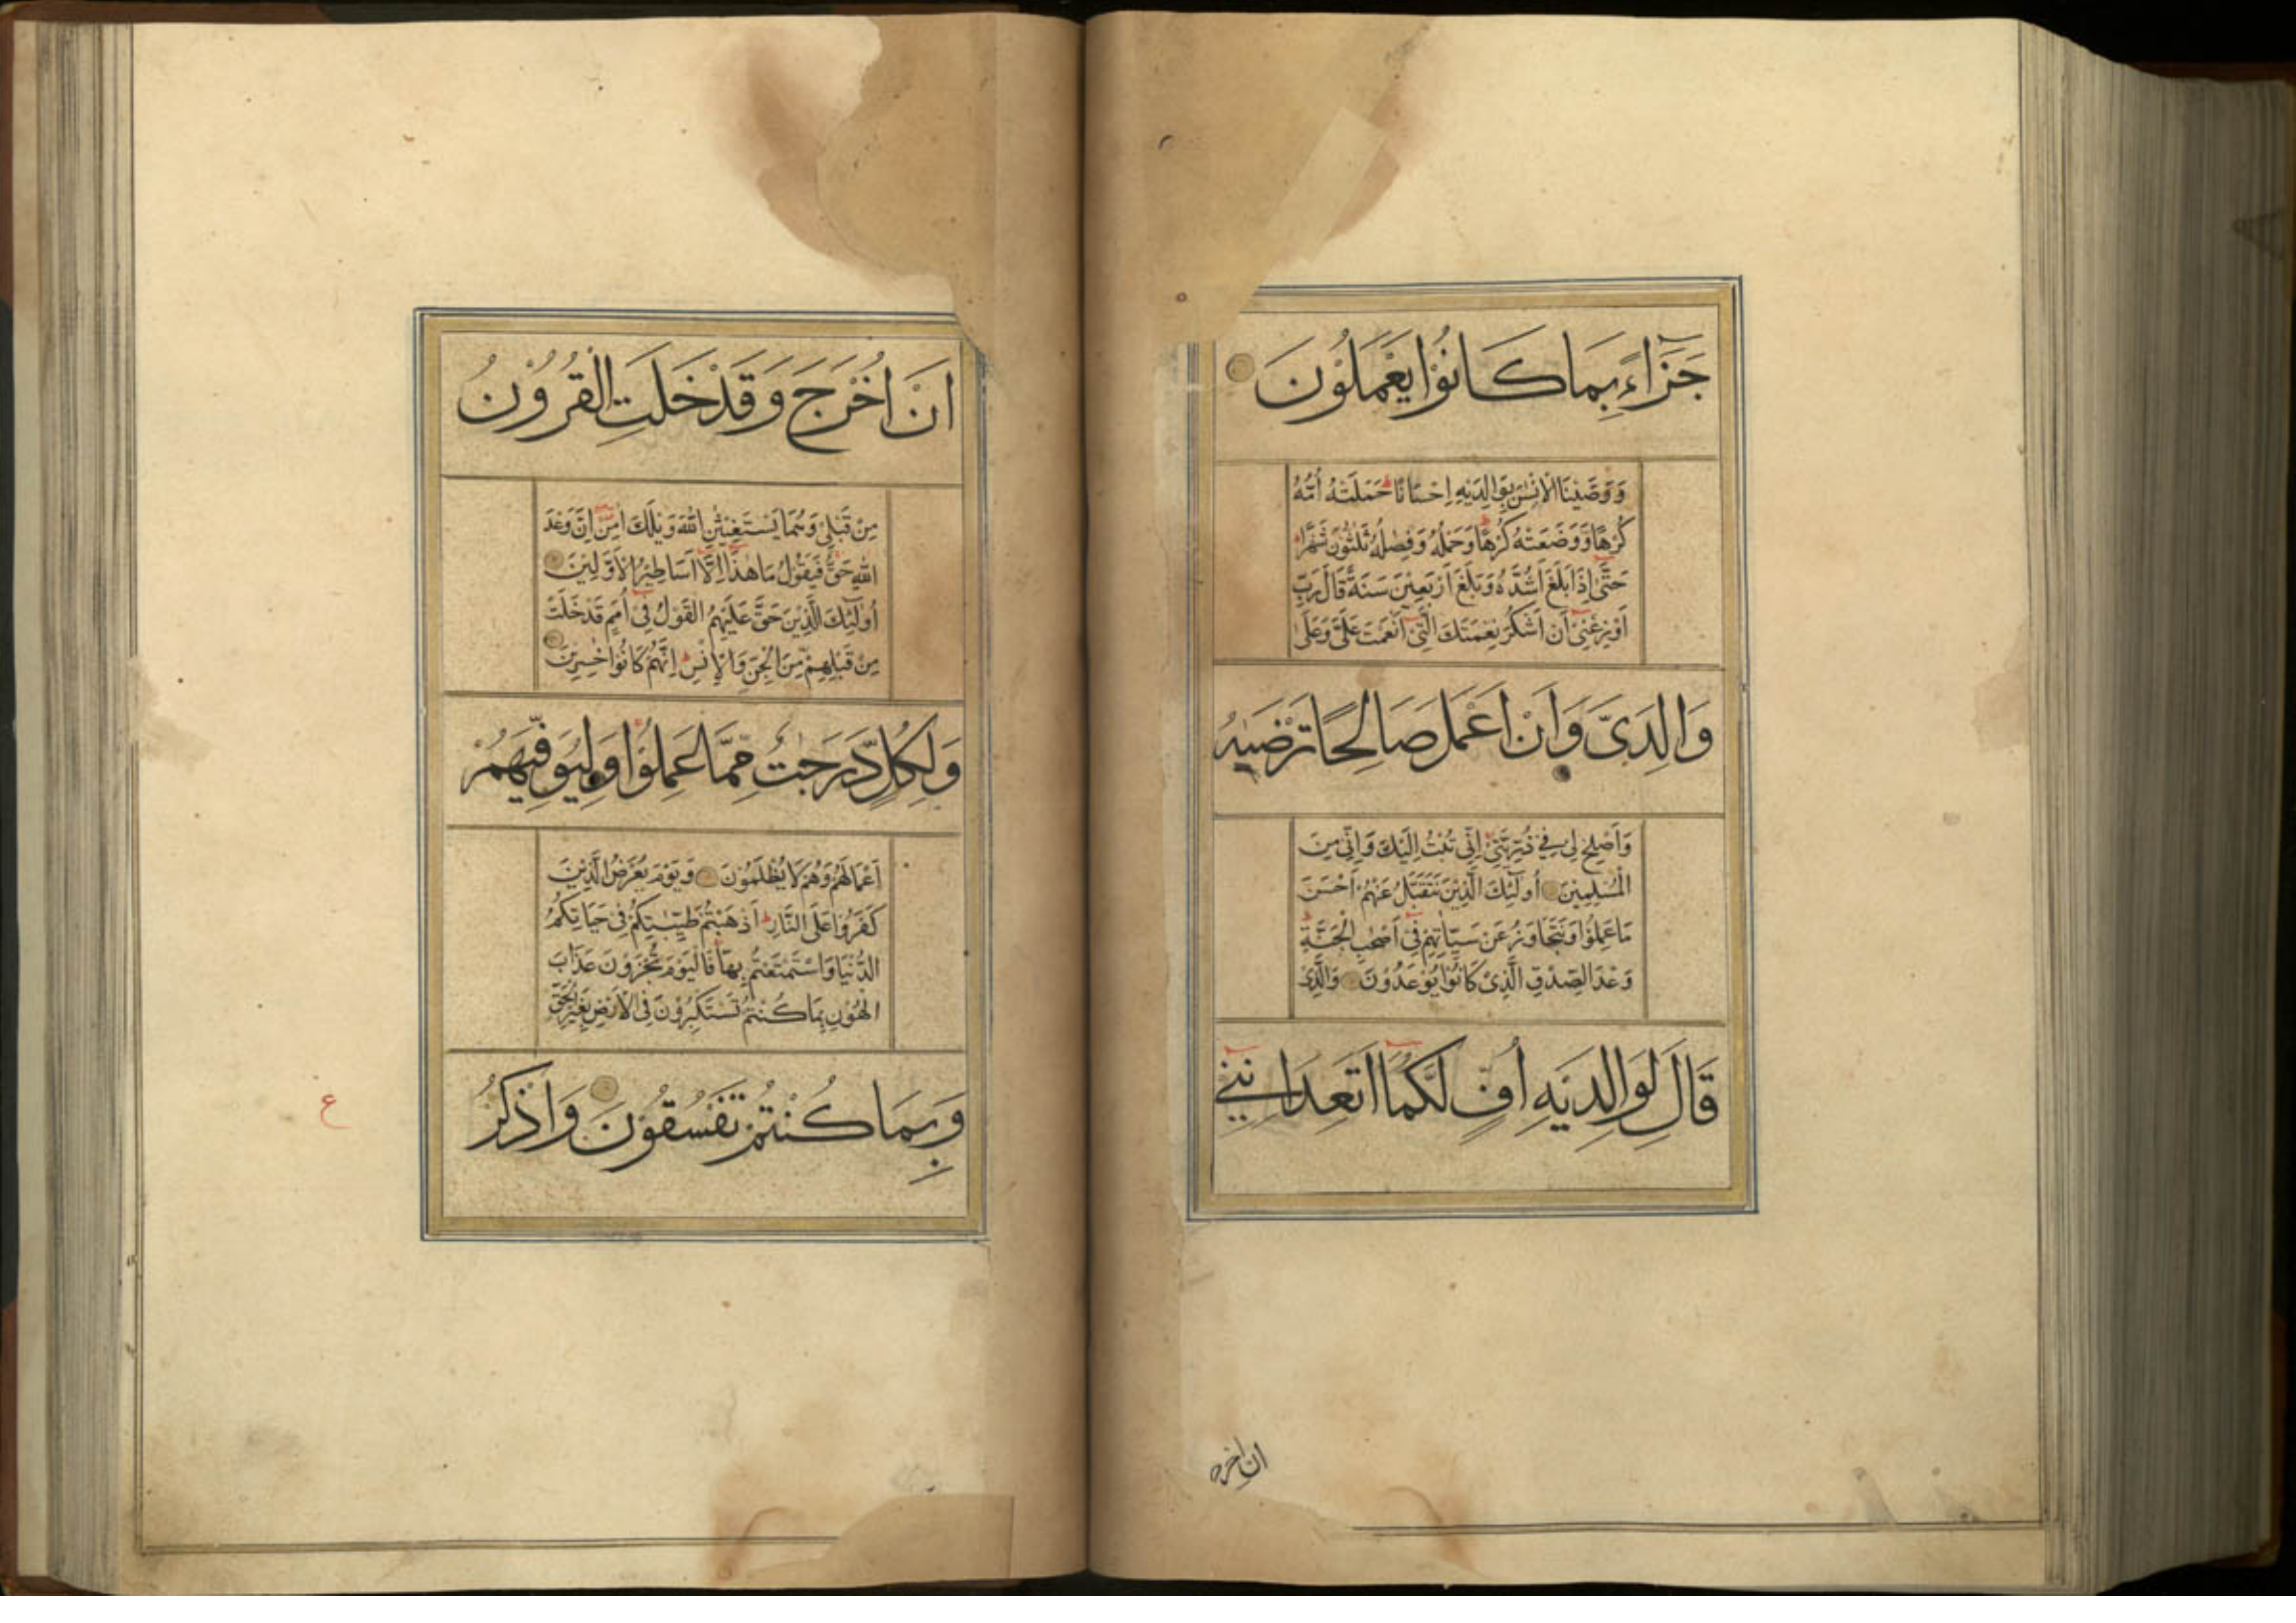 جَزَآءً بِمَا كَانُوْا يَعْمَلُوْنَ
وَوَصَّيْنَا الْاِنْسٰنَ بِوَالِدَيْهِ اِحْسَانًا حَمَلَتْهُ اُمُّهٗ
كُرْهًا وَّوَضَعَتْهُ كُرْهًا وَحَمْلُهٗ وَفِصٰلُهٗ ثَلٰثُوْنَ شَهْرًا
حَتّٰى اِذَا بَلَغَ اَشُدَّهٗ وَبَلَغَ اَرْبَعِيْنَ سَنَةً قَالَ رَبِّ
اَوْزِعْنِىْ اَنْ اَشْكُرَ نِعْمَتَكَ الَّتِىْ اَنْعَمْتَ عَلَىَّ وَعَلٰى
وَالِدَىَّ وَاَنْ اَعْمَلَ صَالِحًا تَرْضٰىهُ
وَاَصْلِحْ لِى فِى ذُرِّيَّتِىْ اِنِّى تُبْتُ اِلَيْكَ وَاِنِّى مِنَ
الْمُسْلِمِيْنَ اُولٰٓئِكَ الَّذِيْنَ نَتَقَبَّلُ عَنْهُمْ اَحْسَنَ
مَا عَمِلُوْا وَنَتَجَاوَزُ عَنْ سَيِّاٰتِهِمْ فِىْ اَصْحٰبِ الْجَنَّةِ
وَعْدَ الصِّدْقِ الَّذِىْ كَانُوْا يُوْعَدُوْنَ وَالَّذِىْ
قَالَ لِوَالِدَيْهِ اُفٍّ لَّكُمَا اَتَعِدَانِنِىْ
ان اخرج
اَنْ اُخْرَجَ وَقَدْ خَلَتِ الْقُرُوْنُ
مِنْ قَبْلِىْ وَهُمَا يَسْتَغِيْثٰنِ اللّٰهَ وَيْلَكَ اٰمِنْ اِنَّ وَعْدَ
اللّٰهِ حَقٌّ فَيَقُوْلُ مَا هٰذَا اِلَّا اَسَاطِيْرُ الْاَوَّلِيْنَ
اُولٰٓئِكَ الَّذِيْنَ حَقَّ عَلَيْهِمُ الْقَوْلُ فِىْ اُمَمٍ قَدْ خَلَتْ
مِنْ قَبْلِهِمْ مِّنَ الْجِنِّ وَالْاِنْسِ اِنَّهُمْ كَانُوْا خٰسِرِيْنَ
وَلِكُلٍّ دَرَجٰتٌ مِّمَّا عَمِلُوْا وَلِيُوَفِّيَهُمْ
اَعْمَالَهُمْ وَهُمْ لَا يُظْلَمُوْنَ وَيَوْمَ يُعْرَضُ الَّذِيْنَ
كَفَرُوْا عَلَى النَّارِ اَذْهَبْتُمْ طَيِّبٰتِكُمْ فِىْ حَيَاتِكُمُ
الدُّنْيَا وَاسْتَمْتَعْتُمْ بِهَا فَالْيَوْمَ تُجْزَوْنَ عَذَابَ
الْهُوْنِ بِمَا كُنْتُمْ تَسْتَكْبِرُوْنَ فِى الْاَرْضِ بِغَيْرِ الْحَقِّ
وَبِمَا كُنْتُمْ تَفْسُقُوْنَ وَاذْكُرْ
ع